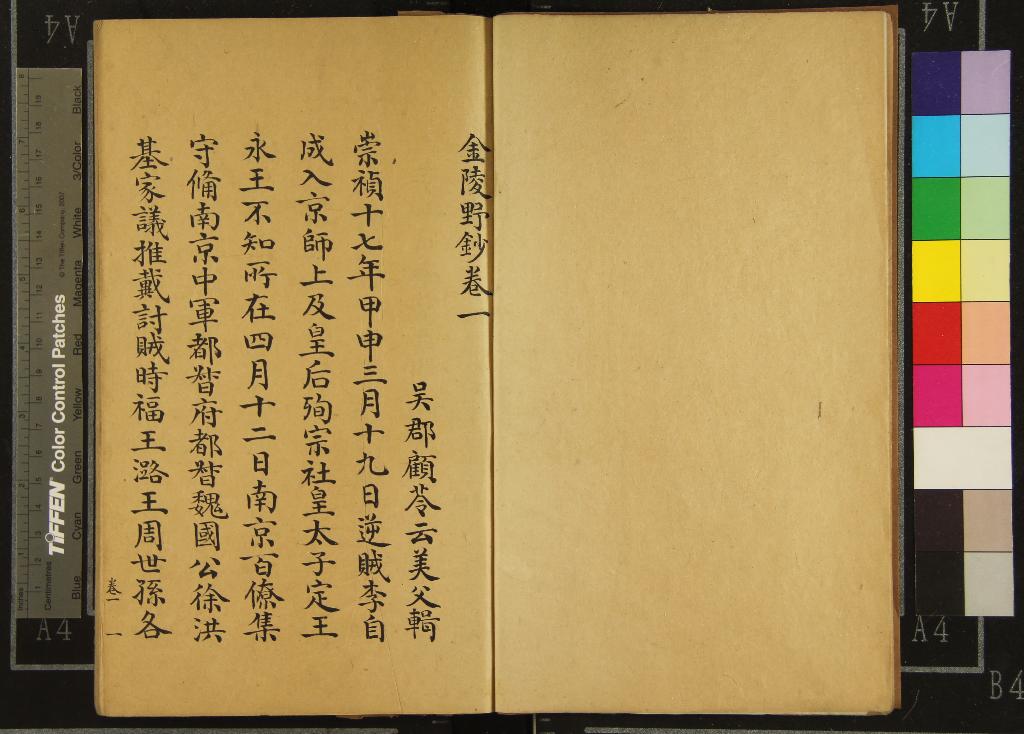 金陵野鈔卷一
吳郡顧苓云美父輯
崇禎十七年甲申三月十九日逆賊李自
成入京師上及皇后殉宗社皇太子定王
永王不知所在四月十二日南京百僚集
守備南京中軍都督府都督魏國公徐洪
基家議推戴討賊時福王潞王周世孫各
卷一 一
TIFFEN Color Control Patches
© The Tiffen Company, 2007
Inches
Centimetres
Blue Cyan Green Yellow Red Magenta White 3/Color Black
A4
A4
A4
A4
B4